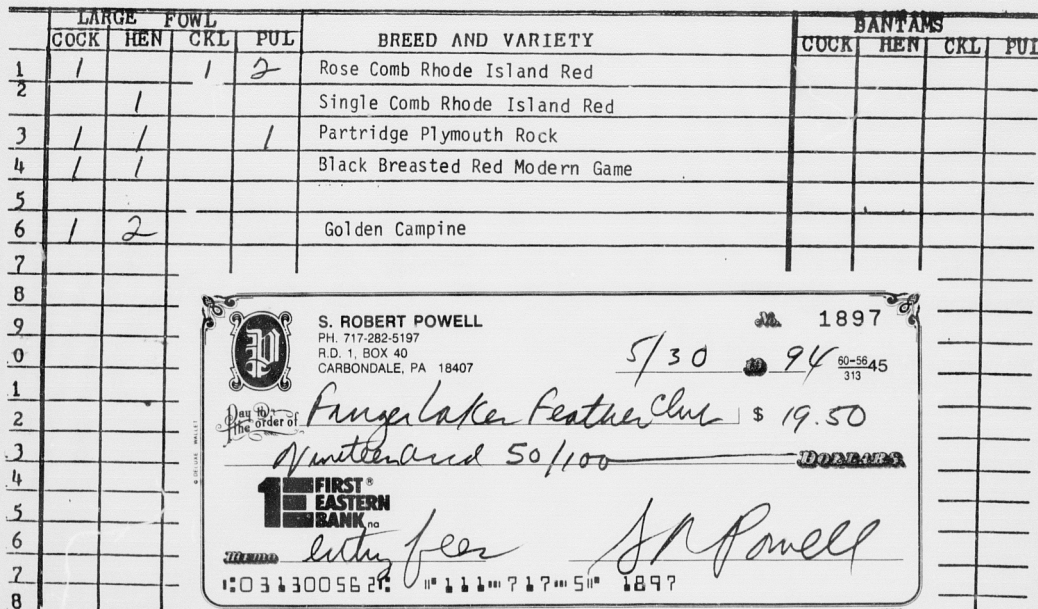 LARGE FOWL BANTAMS
COCK HEN CKL PUL BREED AND VARIETY COCK HEN CKL PUL
1 1 1 2 Rose Comb Rhode Island Red
2 1 Single Comb Rhode Island Red
3 1 1 1 Partridge Plymouth Rock
4 1 1 Black Breasted Red Modern Game
5
6 1 2 Golden Campine
7
8
9
0
1
2
3
4
5
6
7
8
P
S. ROBERT POWELL No. 1897
PH. 717-282-5197
R.D. 1, BOX 40
CARBONDALE, PA 18407
5/30 19 94 60-56/313 45
Pay to the order of Finger Lakes Feather Club $ 19.50
Nineteen and 50/100 DOLLARS
© DELUXE WALLET
1E FIRST® EASTERN BANK, na
MEMO entry fees S R Powell
⑆031300562⑆ ⑈111⑉717⑉5⑈ 1897